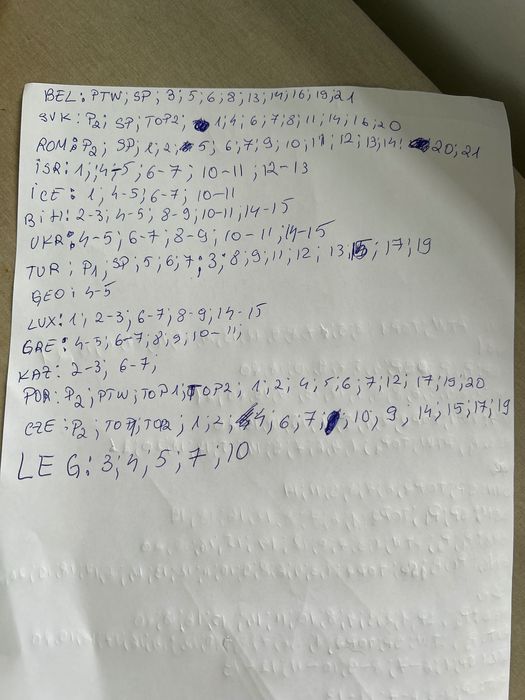 BEL: PTW; SP; 3; 5; 6; 8; 13; 14; 16; 19; 21
SVK: P2; SP; TOP2; 1; 4; 6; 7; 8; 11; 14; 16; 20
ROM: P2; SP; 1; 2; 5; 6; 7; 9; 10; 11; 12; 13; 14; 20; 21
iSR: 1; 4-5; 6-7; 10-11; 12-13
iCE: 1; 4-5; 6-7; 10-11
BiH: 2-3; 4-5; 8-9; 10-11; 14-15
UKR: 4-5; 6-7; 8-9; 10-11; 14-15
TUR: P1; SP; 5; 6; 7; 3; 8; 9; 11; 12; 13; 15; 17; 19
GEO: 4-5
LUX: 1; 2-3; 6-7; 8-9; 14-15
GRE: 4-5; 6-7; 8; 9; 10-11;
KAZ: 2-3; 6-7;
POR: P2; PTW; TOP1; TOP2; 1; 2; 4; 5; 6; 7; 12; 17; 19; 20
CZE: P2; TOP1; TOP2; 1; 2; 4; 6; 7; 10; 9; 14; 15; 17; 19
LEG: 3; 4; 5; 7; 10